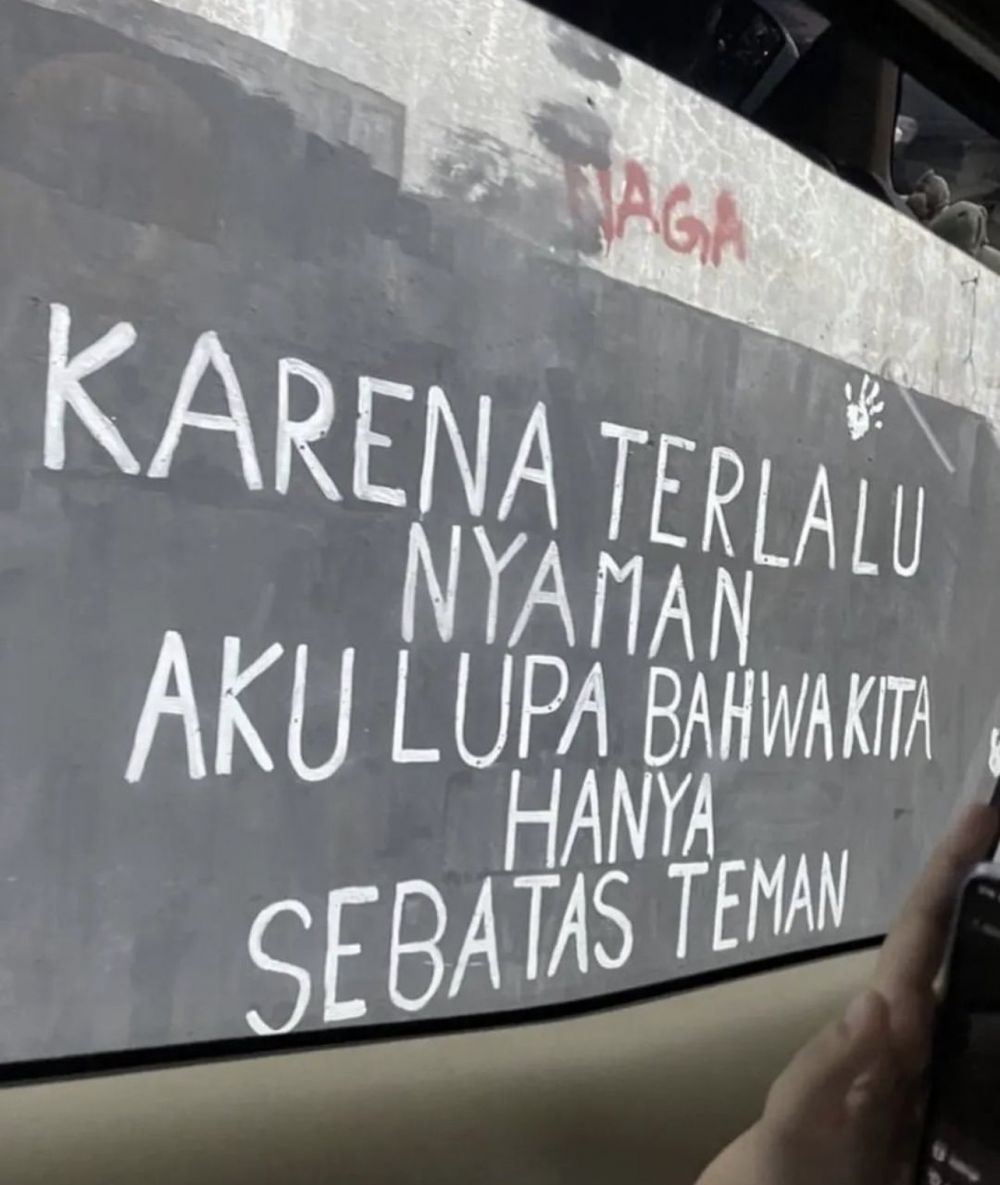 NAGA
KARENA TERLALU
NYAMAN
AKU LUPA BAHWA KITA
HANYA
SEBATAS TEMAN